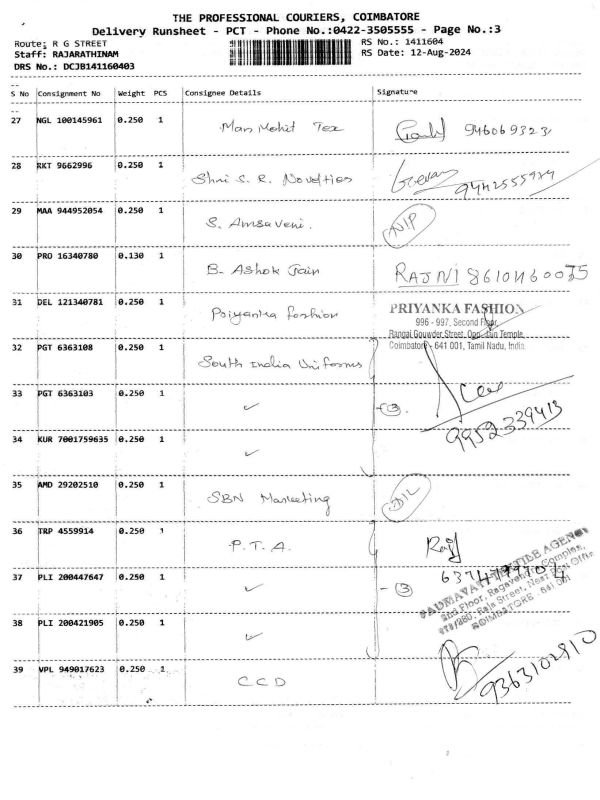 THE PROFESSIONAL COURIERS, COIMBATORE
Delivery Runsheet - PCT - Phone No.:0422-3505555 - Page No.:3
Route: R G STREET RS No.: 1411604
Staff: RAJARATHINAM RS Date: 12-Aug-2024
DRS No.: DCJB141160403
S No Consignment No Weight PCS Consignee Details Signature
27 NGL 100145961 0.250 1 Man Mohit Tex 946069323
28 RKT 9662996 0.250 1 Shri S. R. Novelties 9442555924
29 MAA 944952054 0.250 1 S. Amsaveni.
30 PRO 16340780 0.130 1 B. Ashok Jain RAJNI
31 DEL 121340781 0.250 1 Priyanka fashion PRIYANKA FASHION
996 - 997, Second Floor,
Rangai Gowder Street, Opp. Jain Temple,
Coimbatore - 641 001, Tamil Nadu, India
32 PGT 6363108 0.250 1 South India Uniforms
33 PGT 6363103 0.250 1 ✓ - 3.
9952339413
34 KUR 7001759635 0.250 1 ✓
35 AMD 29202510 0.250 1 SBN Marketing
36 TRP 4559914 0.250 1 P. T. A. Raj
37 PLI 200447647 0.250 1 ✓ - 3
PADMAVATI TEXTILE AGENCY
2nd Floor, Complex,
Raja Street, Near Office
COIMBATORE - 641 001
38 PLI 200421905 0.250 1 ✓
39 VPL 949017623 0.250 1 CCD 9363102910